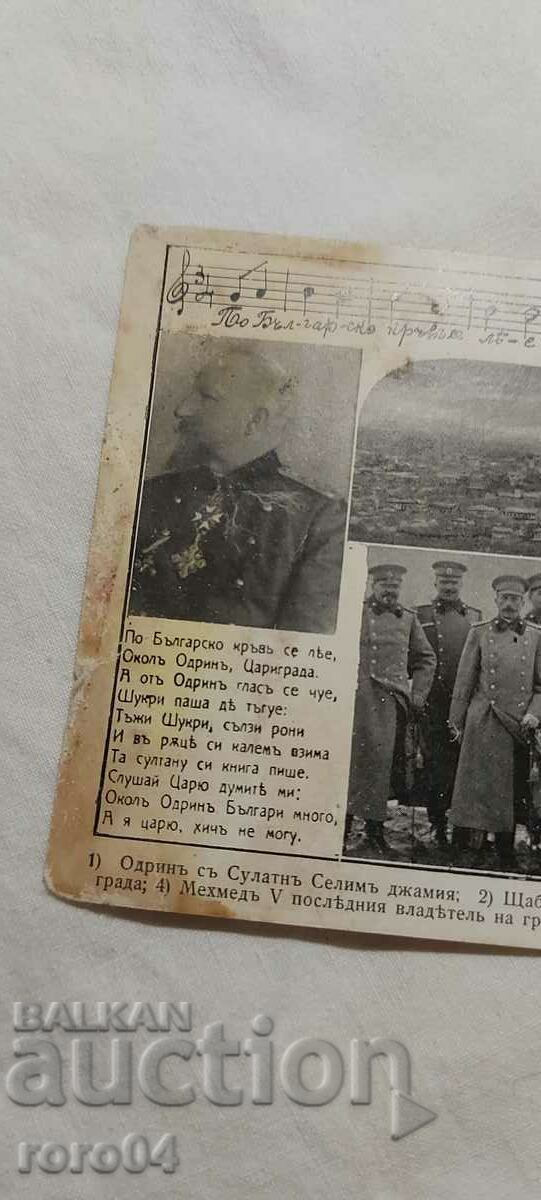 По Бъл-гар-ско кръвъ лѣ-е
По Българско кръвь се лѣе,
Околъ Одринъ, Цариграда.
А отъ Одринъ гласъ се чуе,
Шукри паша дѣ тъгуе:
Тъжи Шукри, сълзи рони
И въ рѫцѣ си калемъ взима
Та султану си книга пише.
Слушай Царю думитѣ ми:
Околъ Одринъ Българи много,
А я царю, хичъ не могу.
1) Одринъ съ Сулатнъ Селимъ джамия; 2) Щаб
града; 4) Мехмедъ V послѣдния владѣтель на гр
BALKAN
auction
roro04